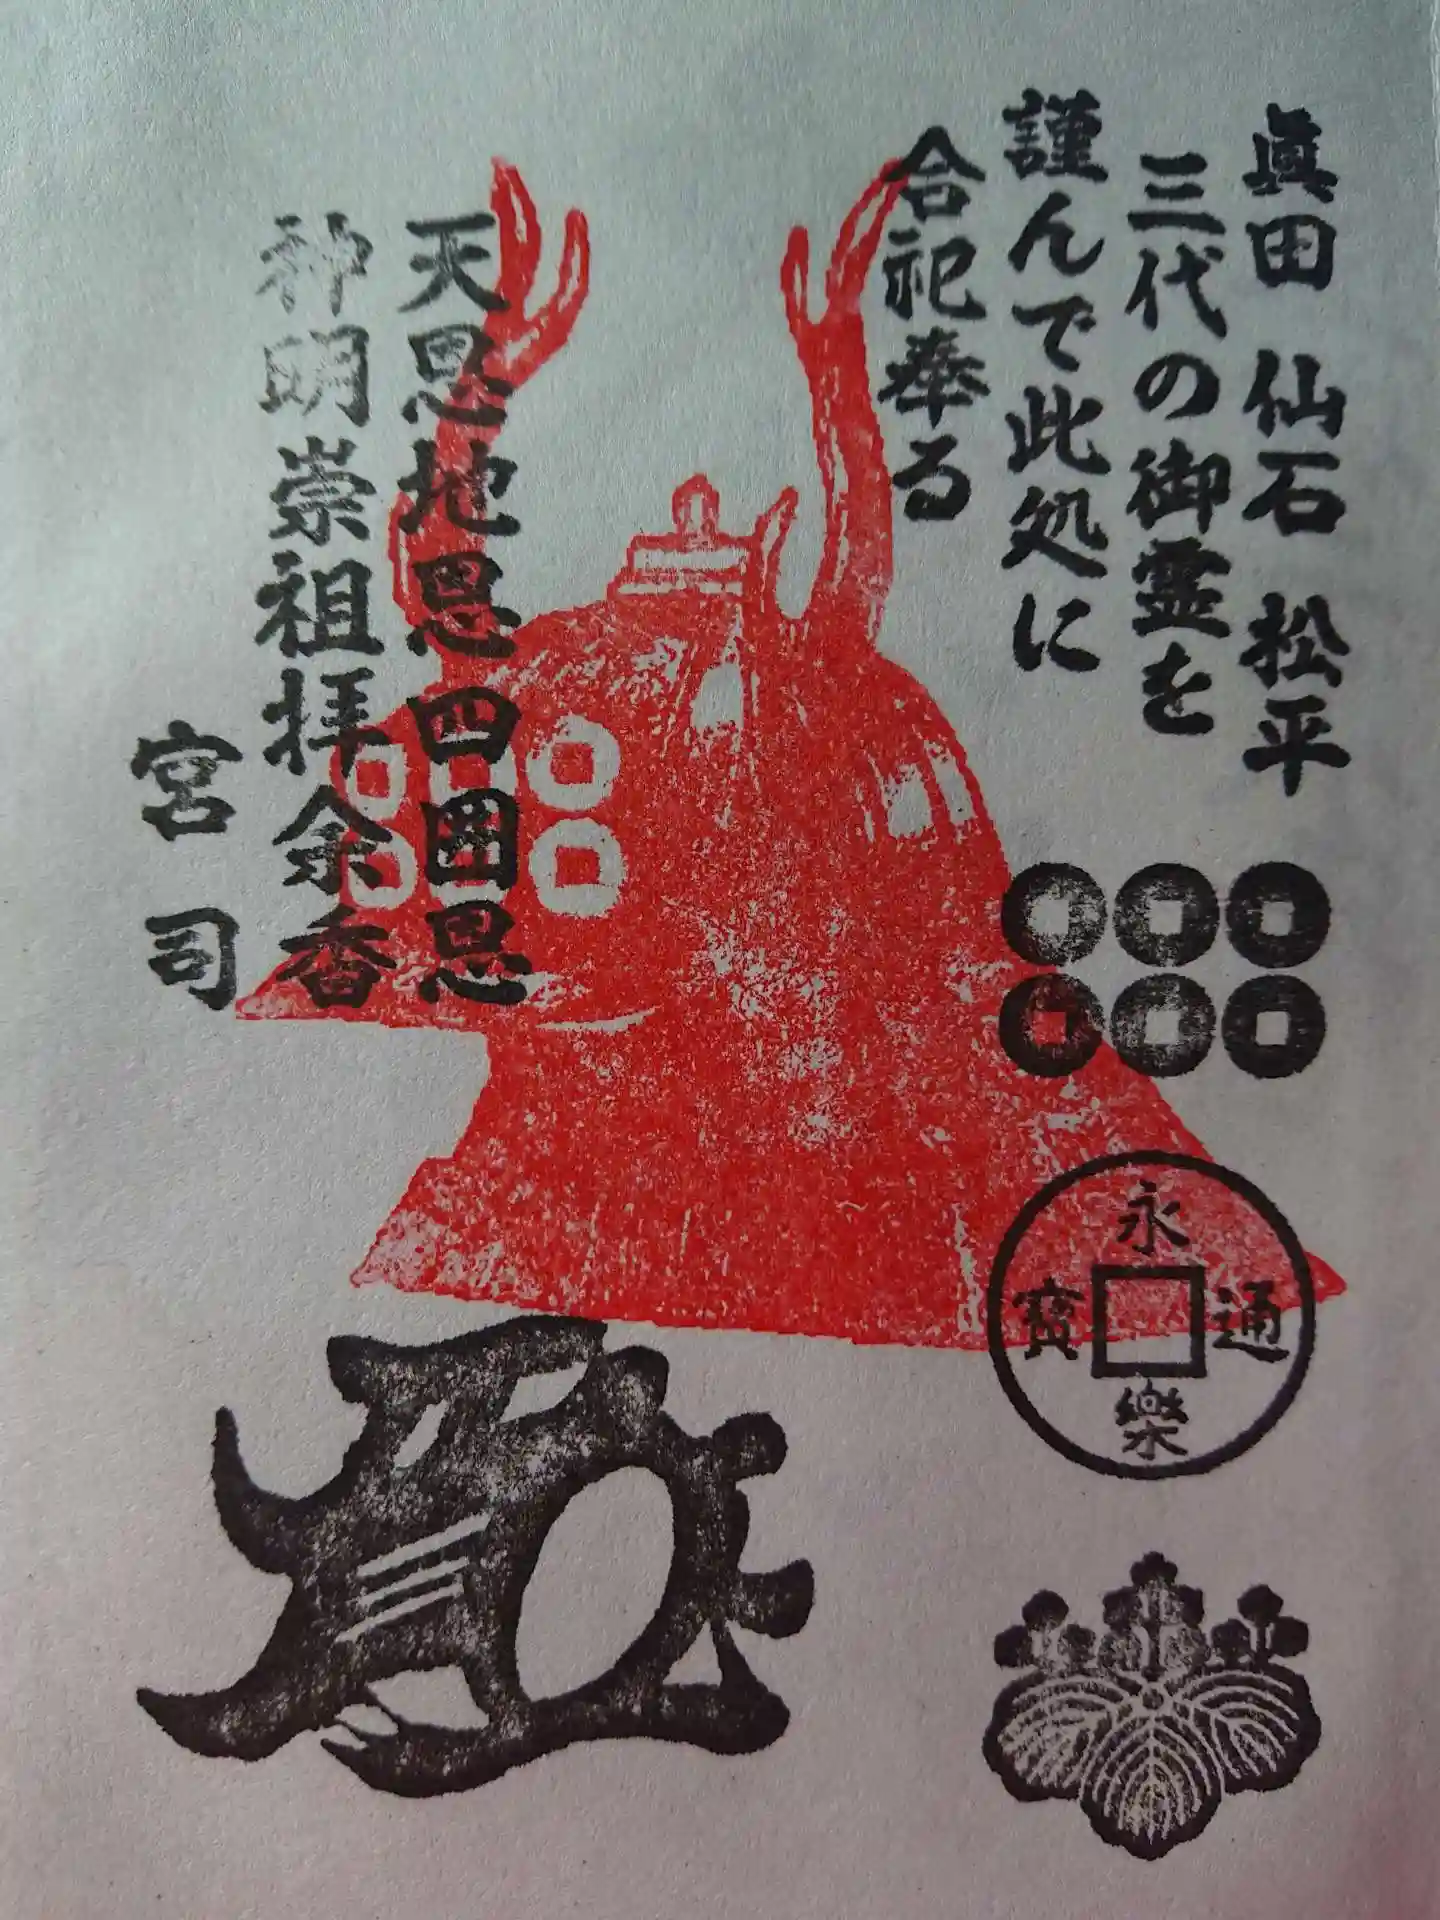 眞田 仙石 松平
三代の御霊を
謹んで此処に
合祀奉る
天恩地恩四圀恩
神明崇祖拝余香
宮司
永樂通寳